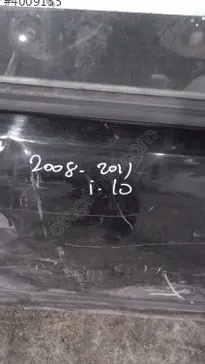 #4009135
2008-2011
i-10